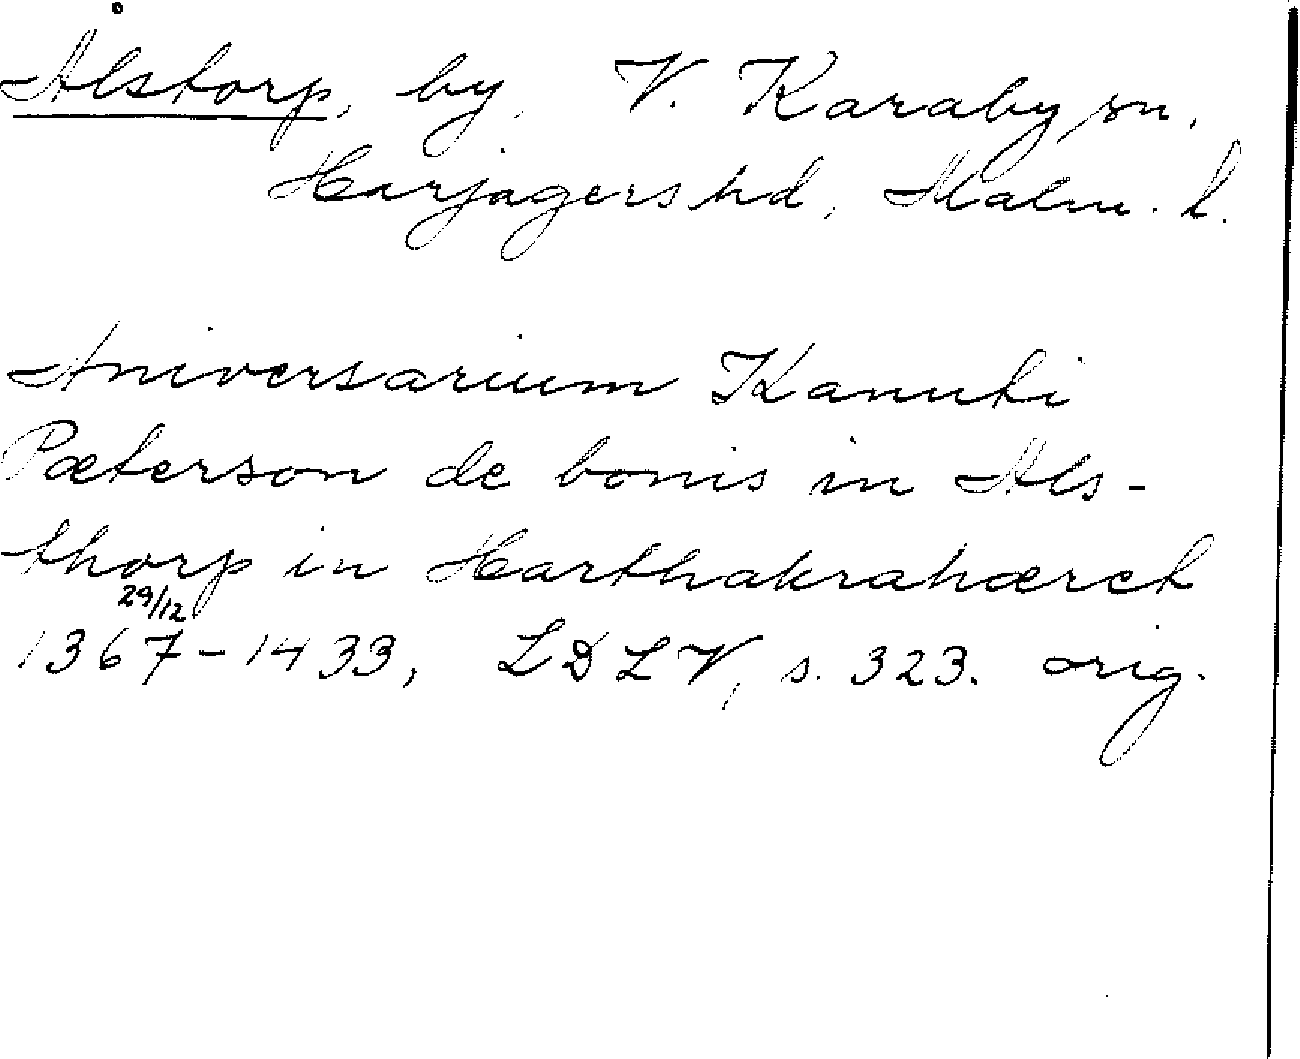 Ålstorp, by, V. Karaby sn,
Harjagers hd, Malm. l.
Aniversarium Kanuti
Pæterson de bonis in Als-
thorp in Harthakrahæreth
29/12
1367-1433, LDLV, s. 323. orig.